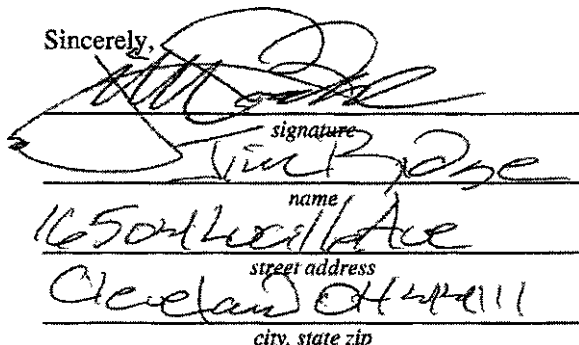 Sincerely,
signature
Jim Ridge
name
16504 Lucille Ave
street address
Cleveland OH 44111
city, state zip